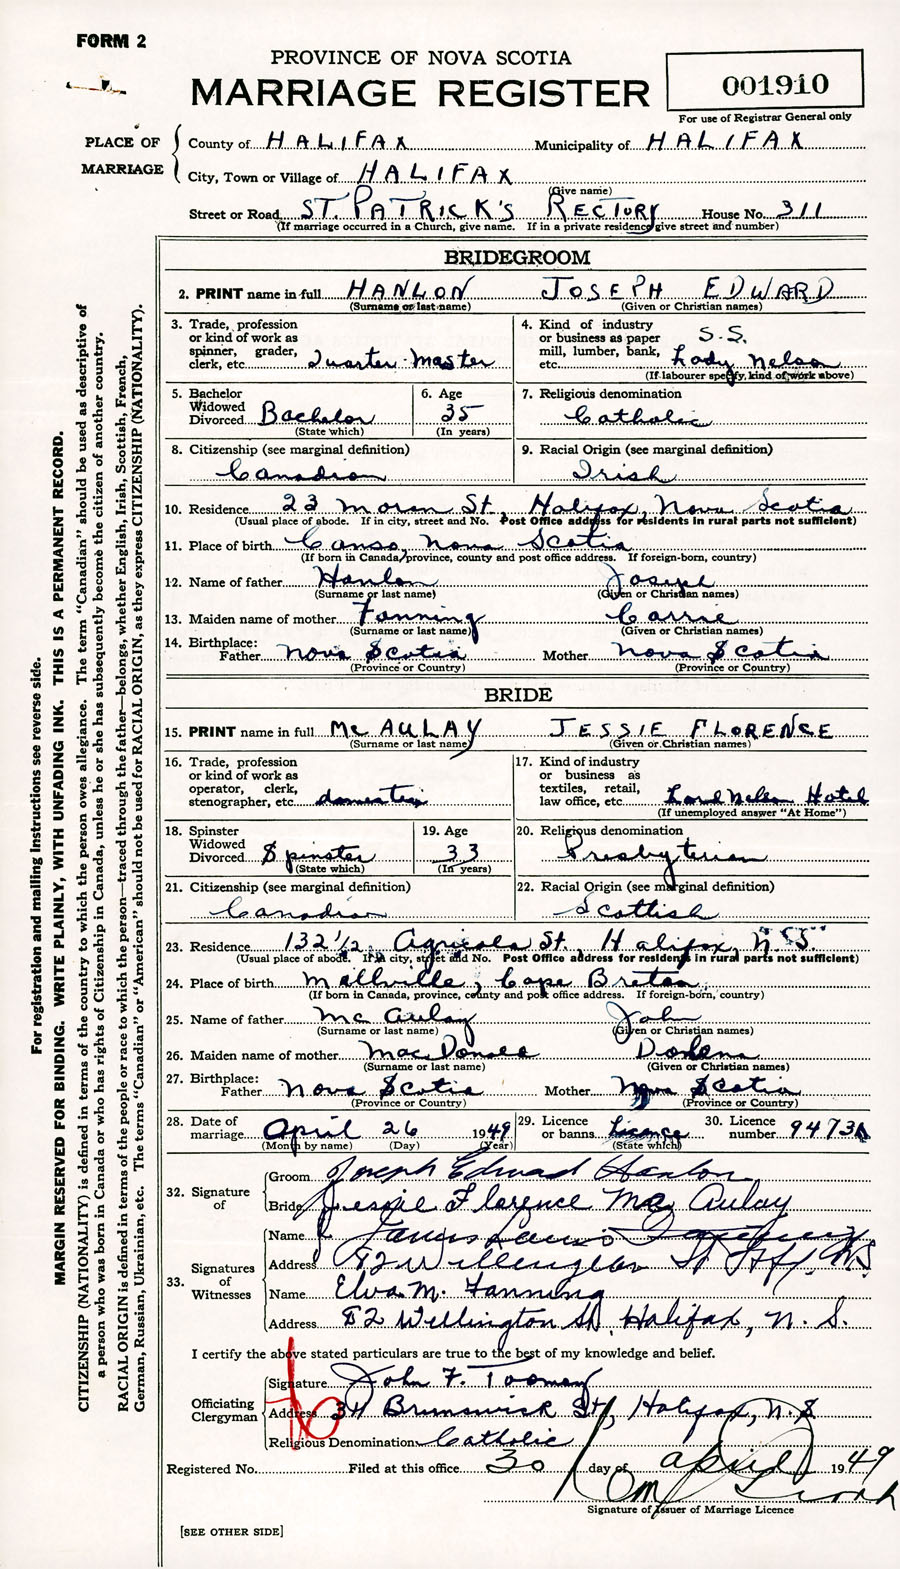 FORM 2
PROVINCE OF NOVA SCOTIA
MARRIAGE REGISTER
001910
For use of Registrar General only
PLACE OF MARRIAGE
County of HALIFAX Municipality of HALIFAX
City, Town or Village of HALIFAX
(Give name)
Street or Road ST. PATRICK'S RECTORY House No. 311
(If marriage occurred in a Church, give name. If in a private residence give street and number)
BRIDEGROOM
2. PRINT name in full HANLON JOSEPH EDWARD
(Surname or last name) (Given or Christian names)
3. Trade, profession or kind of work as spinner, grader, clerk, etc. Quarter-Master
4. Kind of industry or business as paper mill, lumber, bank, etc. S.S. Lady Nelson
(If labourer specify, kind of work above)
5. Bachelor Widowed Divorced Bachelor
(State which)
6. Age 35
(In years)
7. Religious denomination
Catholic
8. Citizenship (see marginal definition)
Canadian
9. Racial Origin (see marginal definition)
Irish
10. Residence 23 Moran St., Halifax, Nova Scotia
(Usual place of abode. If in city, street and No. Post Office address for residents in rural parts not sufficient)
11. Place of birth Canso, Nova Scotia
(If born in Canada, province, county and post office address. If foreign-born, country)
12. Name of father Hanlon Joseph
(Surname or last name) (Given or Christian names)
13. Maiden name of mother Fanning Carrie
(Surname or last name) (Given or Christian names)
14. Birthplace:
Father Nova Scotia Mother Nova Scotia
(Province or Country) (Province or Country)
BRIDE
15. PRINT name in full McAULAY JESSIE FLORENCE
(Surname or last name) (Given or Christian names)
16. Trade, profession or kind of work as operator, clerk, stenographer, etc. domestic
17. Kind of industry or business as textiles, retail, law office, etc. Lord Nelson Hotel
(If unemployed answer "At Home")
18. Spinster Widowed Divorced Spinster
(State which)
19. Age 33
(In years)
20. Religious denomination
Presbyterian
21. Citizenship (see marginal definition)
Canadian
22. Racial Origin (see marginal definition)
Scottish
23. Residence 132 1/2 Agricola St., Halifax, N.S.
(Usual place of abode. If in city, street and No. Post Office address for residents in rural parts not sufficient)
24. Place of birth Millville, Cape Breton
(If born in Canada, province, county and post office address. If foreign-born, country)
25. Name of father McAulay John
(Surname or last name) (Given or Christian names)
26. Maiden name of mother MacDonald
(Surname or last name) (Given or Christian names)
27. Birthplace:
Father Nova Scotia Mother Nova Scotia
(Province or Country) (Province or Country)
28. Date of marriage April 26 1949
(Month by name) (Day) (Year)
29. Licence or banns Licence
(State which)
30. Licence number 9473A
32. Signature of
Groom Joseph Edward Hanlon
Bride Jessie Florence MacAulay
33. Signatures of Witnesses
Name James
Address 82 Wellington St Hfx, N.S.
Name Elva M. Fanning
Address 82 Wellington St., Halifax, N.S.
I certify the above stated particulars are true to the best of my knowledge and belief.
Officiating Clergyman
Signature John F. Toomey
Address Brunswick St., Halifax, N.S
Religious Denomination Catholic
Registered No. Filed at this office 30 day of April 1949
Signature of Issuer of Marriage Licence
[SEE OTHER SIDE]
For registration and mailing Instructions see reverse side.
MARGIN RESERVED FOR BINDING. WRITE PLAINLY, WITH UNFADING INK. THIS IS A PERMANENT RECORD.
CITIZENSHIP (NATIONALITY) is defined in terms of the country to which the person owes allegiance. The term "Canadian" should be used as descriptive of
a person who was born in Canada or who has rights of Citizenship in Canada, unless he or she has subsequently become the citizen of another country.
RACIAL ORIGIN is defined in terms of the people or race to which the person—traced through the father—belongs, whether English, Irish, Scottish, French,
German, Russian, Ukrainian, etc. The terms "Canadian" or "American" should not be used for RACIAL ORIGIN, as they express CITIZENSHIP (NATIONALITY).